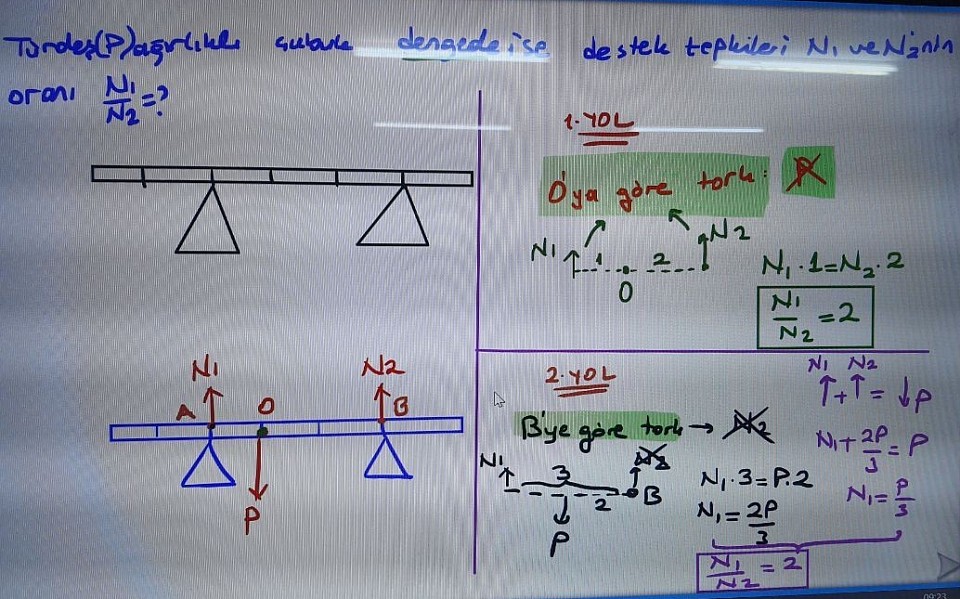 Türdeş(P)ağırlıklı çubuk dengede ise destek tepkileri N1 ve N2'nin
oranı N1/N2=?
1.YOL
O'ya göre tork: P
N1 N2
1 2
O
N1.1=N2.2
N1/N2=2
N1 N2
A O B
P
2.YOL
B'ye göre tork → N2
N1 3 N2
2 B
P
N1.3=P.2
N1=2P/3
N1 N2
↑+↑=↓P
N1+2P/3=P
N1=P/3
N1/N2=2
09:23